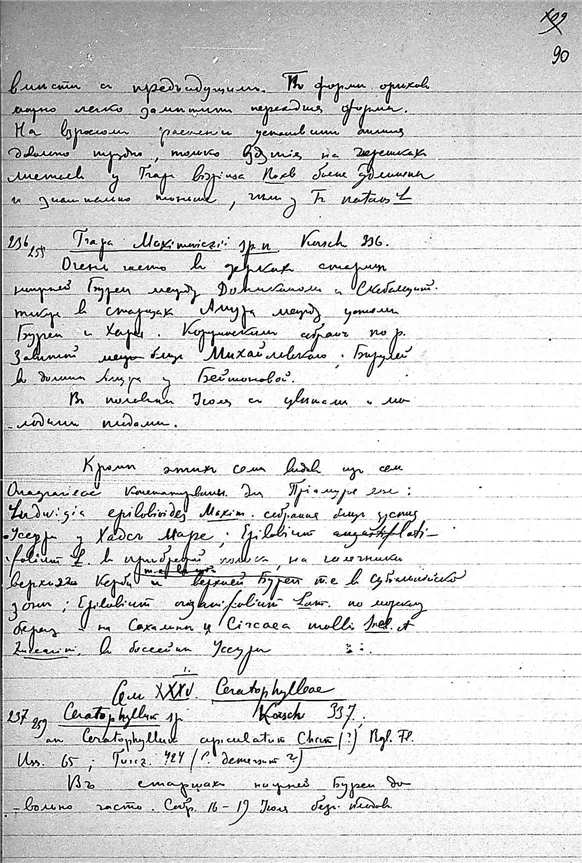 109
90
вместе съ предъидущимъ. Въ форме орехов
можно легко заметить переходныя формы.
На взросломъ растении установить отличия
довольно трудно, только вздутия на черешкахъ
листьевъ у Trapa bispinosa Roxb более удлинены
и значительно тоньше, чемъ у Tr. natans L
236 255 Trapa Maximowiczii sp. n Korsch 236.
Очень часто в озеркахъ старицъ
нижней Буреи между Домиканомъ и Скобельциной.
также в старицахъ Амура между устьемъ
Буреи и Хары. Коржинскимъ собранъ по р.
Завитой близъ Михайловскаго; Бируей
в долине Амура у Бейтоновой.
Въ половине Июля съ цветами и мо-
-лодыми плодами.
Кроме этихъ семи видовъ изъ сем
Onagrarieae констатированы для Приамурья еще:
Ludwigia epilobioides Maxim. собранная близъ устья
Уссури у Хадсъ Маре; Epilobium
folium L. в на галечнике
верхней Буреи т.е в субальпийской
зоне; Epilobium origanifolium Lam. по морскому
берегу на Сахалине и Circaea mollis Sieb. et
Zuccarini. в бассейне Уссури
Сем XXXV. Ceratophylleae
237 259 Ceratophyllum sp Korsch 337,
an Ceratophyllum apiculatum Cham (?) Rgl. Fl.
Uss. 65; Turcz. 424 (C. demersum ?)
Въ старицахъ нижней Буреи до-
-вольно часто. Собр. 16-19 Июля безъ плодовъ.